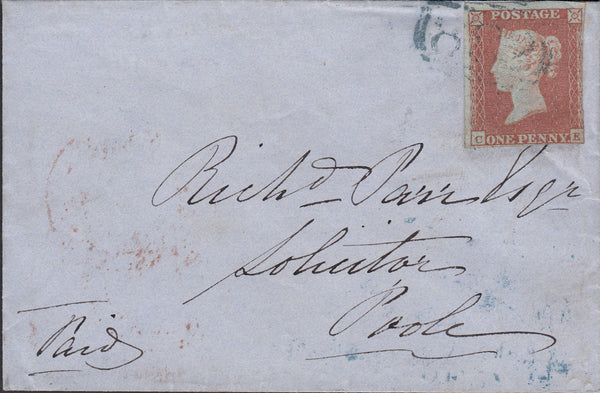 POSTAGE
C ONE PENNY E
Richd Parr Esqr
Solicitor
Poole
Paid